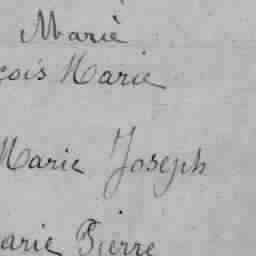 Marie
çois Marie
Marie Joseph
arie Pierre